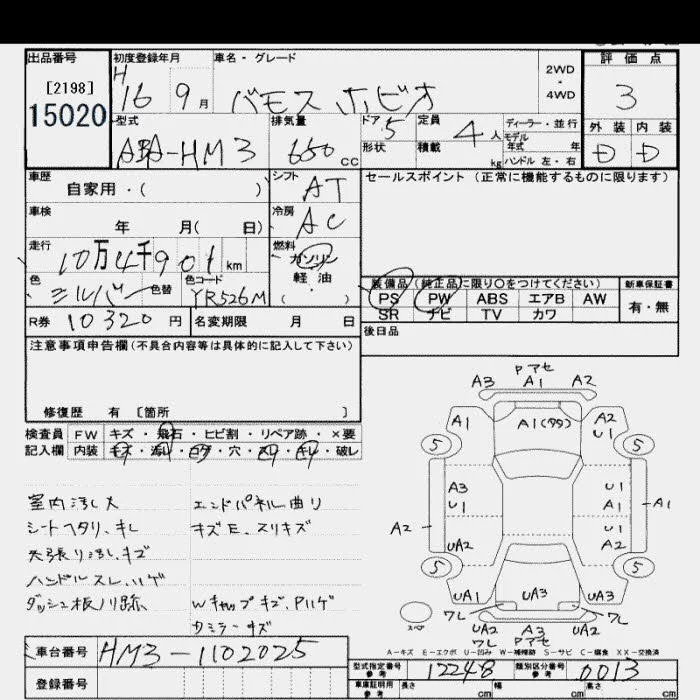 出品番号 初度登録年月 車名・グレード 2WD・4WD 評価点
[2198] H 16 9月 バモス ホビオ 3
15020
型式 排気量 ドア 5 定員 4人 ディーラー・並行 外装 内装
モデル年式 年
ABA-HM3 650cc 形状 積載 kg ハンドル 左・右 D D
車歴 自家用・( ) シフト AT セールスポイント (正常に機能するものに限ります)
車検 年 月( 日) 冷房 AC
走行 10万4千901km 燃料 ガソリン
軽油
・( )
色 シルバー 色替 色コード YR526M
装備品(純正品に限り〇をつけてください) 新車保証書
PS PW ABS エアB AW 有・無
SR ナビ TV カワ
R券 10320円 名変期限 月 日 後日品
注意事項申告欄(不具合内容等は具体的に記入して下さい)
修復歴 有 [箇所 ]
検査員 FW キズ・飛石・ヒビ割・リペア跡・×要
記入欄 内装 キズ・汚レ・コゲ・穴・スレ・キレ・破レ
室内汚し大 エンドパネル曲リ
シートヘタリ、キレ キズE、スリキズ
天張り汚し、キズ
ハンドルスレ、ハゲ
ダッシュ板ノリ跡 Wキャップキズ、Pハゲ
ミラーキズ
PアセA3 A1 A2
A1 A1(99) A2
U1
5 5
A3 U1
U1 A1 A1
A2 U1
UA2 A2
5 5
UA1 UA3 UA3
ワレ ワレ
スペア
UA2 A3 UA2
Pアセ
A-キズ E-エクボ U-凹み W-補修跡 S-サビ C-腐食 XX-交換済
車台番号 HM3-1102025 型式指定番号 参考 12248 類別区分番号 参考 0013
登録番号 車庫証明用 参考 長さ cm 幅 cm 高さ cm